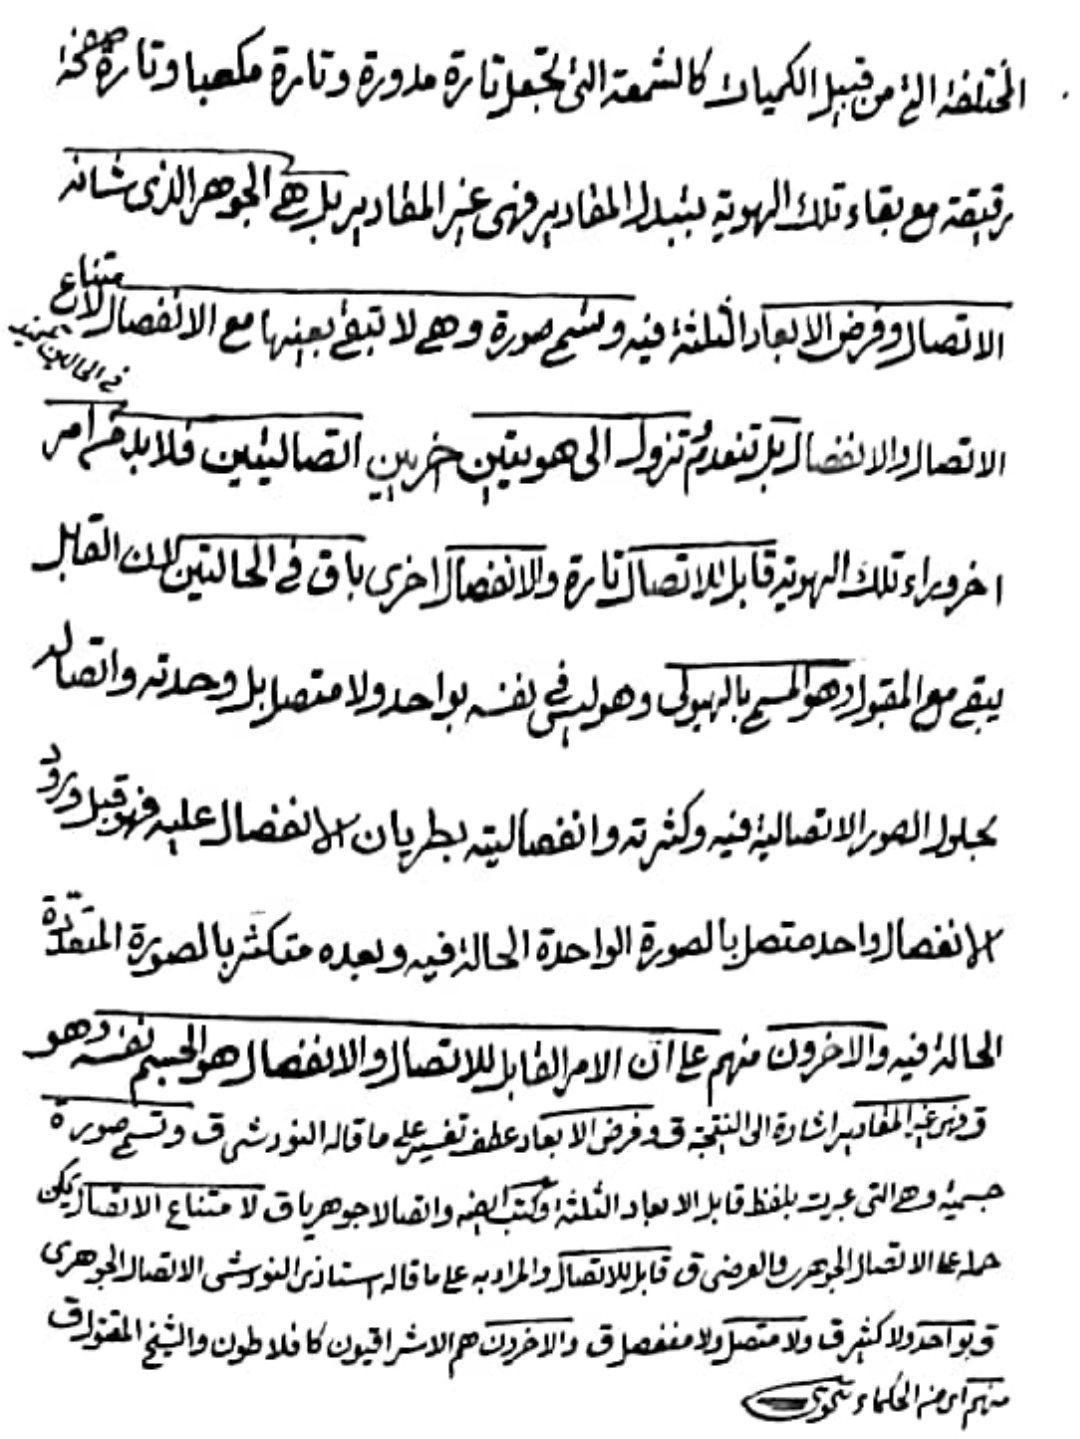 المختلفة التى من قبيل الكميات كالشمعة التى تجعل تارة مدورة وتارة مكعبا وتارة صفحة
رقيقة مع بقاء تلك الهوية بتبدل المقادير فهى غير المقادير بل هى الجوهر الذى شانه
الاتصال وفرض الابعاد الثلثة فيه وتسمى صورة وهى لا تبقى بعينها مع الانفصال لامتناع
الاتصال والانفصال بل تنعدم تزول الى هويتين اخريين اتصاليتين فلابد ثم امر
فى الحالين
اخر وراء تلك الهوية قابل للاتصال تارة والانفصال اخرى باق فى الحالتين لان القابل
يبقى مع المقبول وهو المسمى بالهيولى وهو ليس فى نفسه بواحد ولا متصل بل وحدته واتصاله
بحلول الصور الاتصالية فيه وكثرته وانفصاليته بطريان الانفصال عليه فهو قبل ورود
الانفصال واحد متصل بالصورة الواحدة الحالة فيه وبعده متكثر بالصورة المتعددة
الحالة فيه والاخرون منهم على ان الامر القابل للاتصال والانفصال هو الجسم نفسه وهو
ق فهى غير المقادير اشارة الى النتيجة ق وفرض الابعاد عطف تفسير على ما قاله النودشى ق وتسمى صورة
جسمية وهى التى عبرت بلفظ قابل الابعاد الثلثة وكتب ايضه واتصالا جوهريا ق لامتناع الاتصال يمكن
حمله على الاتصال الجوهرى والعرضى ق قابل للاتصال والمراد به على ما قاله استاذى النودشى الاتصال الجوهرى
ق بواحد ولا كثير ق ولا متصل ولا منفصل ق والاخرون هم الاشراقيون كافلاطون والشيخ المقتول ق
منهم اى من الحكماء